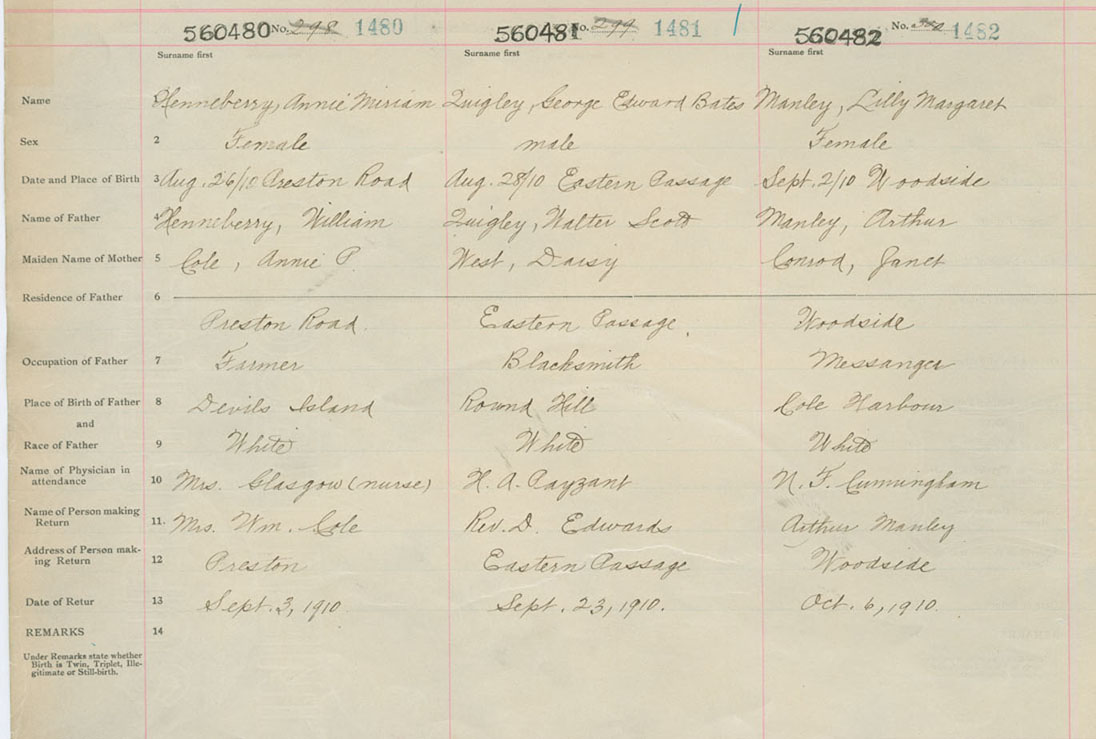 560480 No. 298 1480 560481 No. 299 1481 560482 No. 1482
Surname first Surname first Surname first
Name 1 Henneberry, Annie Miriam Quigley, George Edward Bates Manley, Lilly Margaret
Sex 2 Female male Female
Date and Place of Birth 3 Aug. 26/10 Preston Road Aug. 28/10 Eastern Passage Sept. 2/10 Woodside
Name of Father 4 Henneberry, William Quigley, Walter Scott Manley, Arthur
Maiden Name of Mother 5 Cole, Annie P. West, Daisy Conrod, Janet
Residence of Father 6
Preston Road. Eastern Passage. Woodside
Occupation of Father 7 Farmer Blacksmith Messanger
Place of Birth of Father 8 Devils Island Round Hill Cole Harbour
and
Race of Father 9 White White White
Name of Physician in
attendance 10 Mrs. Glasgow (nurse) H. A. Payzant N. F. Cunningham
Name of Person making
Return 11. Mrs. Wm. Cole Rev. D. Edwards Arthur Manley
Address of Person mak-
ing Return 12 Preston Eastern Passage Woodside
Date of Retur 13 Sept. 3, 1910. Sept. 23, 1910. Oct. 6, 1910.
REMARKS 14
Under Remarks state whether
Birth is Twin, Triplet, Ille-
gitimate or Still-birth.